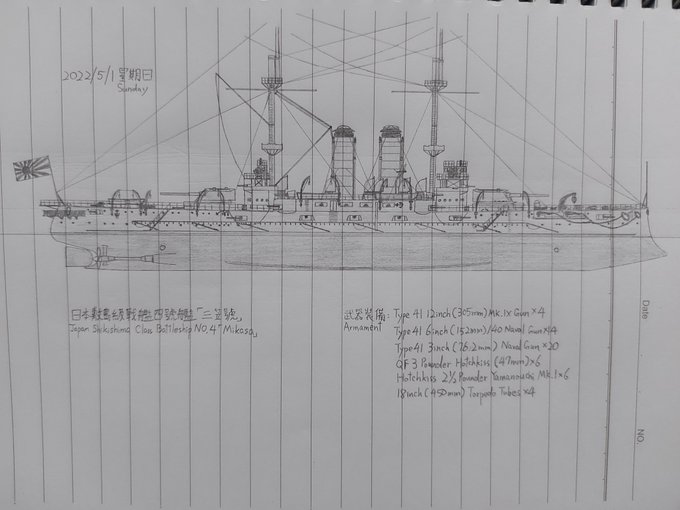 2022/5/1星期日
Sunday
日本敷島級戰艦四號艦「三笠號」
Japan Shikishima Class Battleship NO,4 "Mikasa"
武器裝備:
Armament
Type 41 12inch (305mm) Mk.IX Gun ×4
Type 41 6inch (152mm)/40 Naval Gun ×14
Type 41 3inch (76.2mm) Naval Gun ×20
QF 3 Pounder Hotchkiss (47mm)×6
Hotchkiss 2½ Pounder Yamanouchi Mk.1×6
18inch (450mm) Torpedo Tubes ×4
Date
NO.